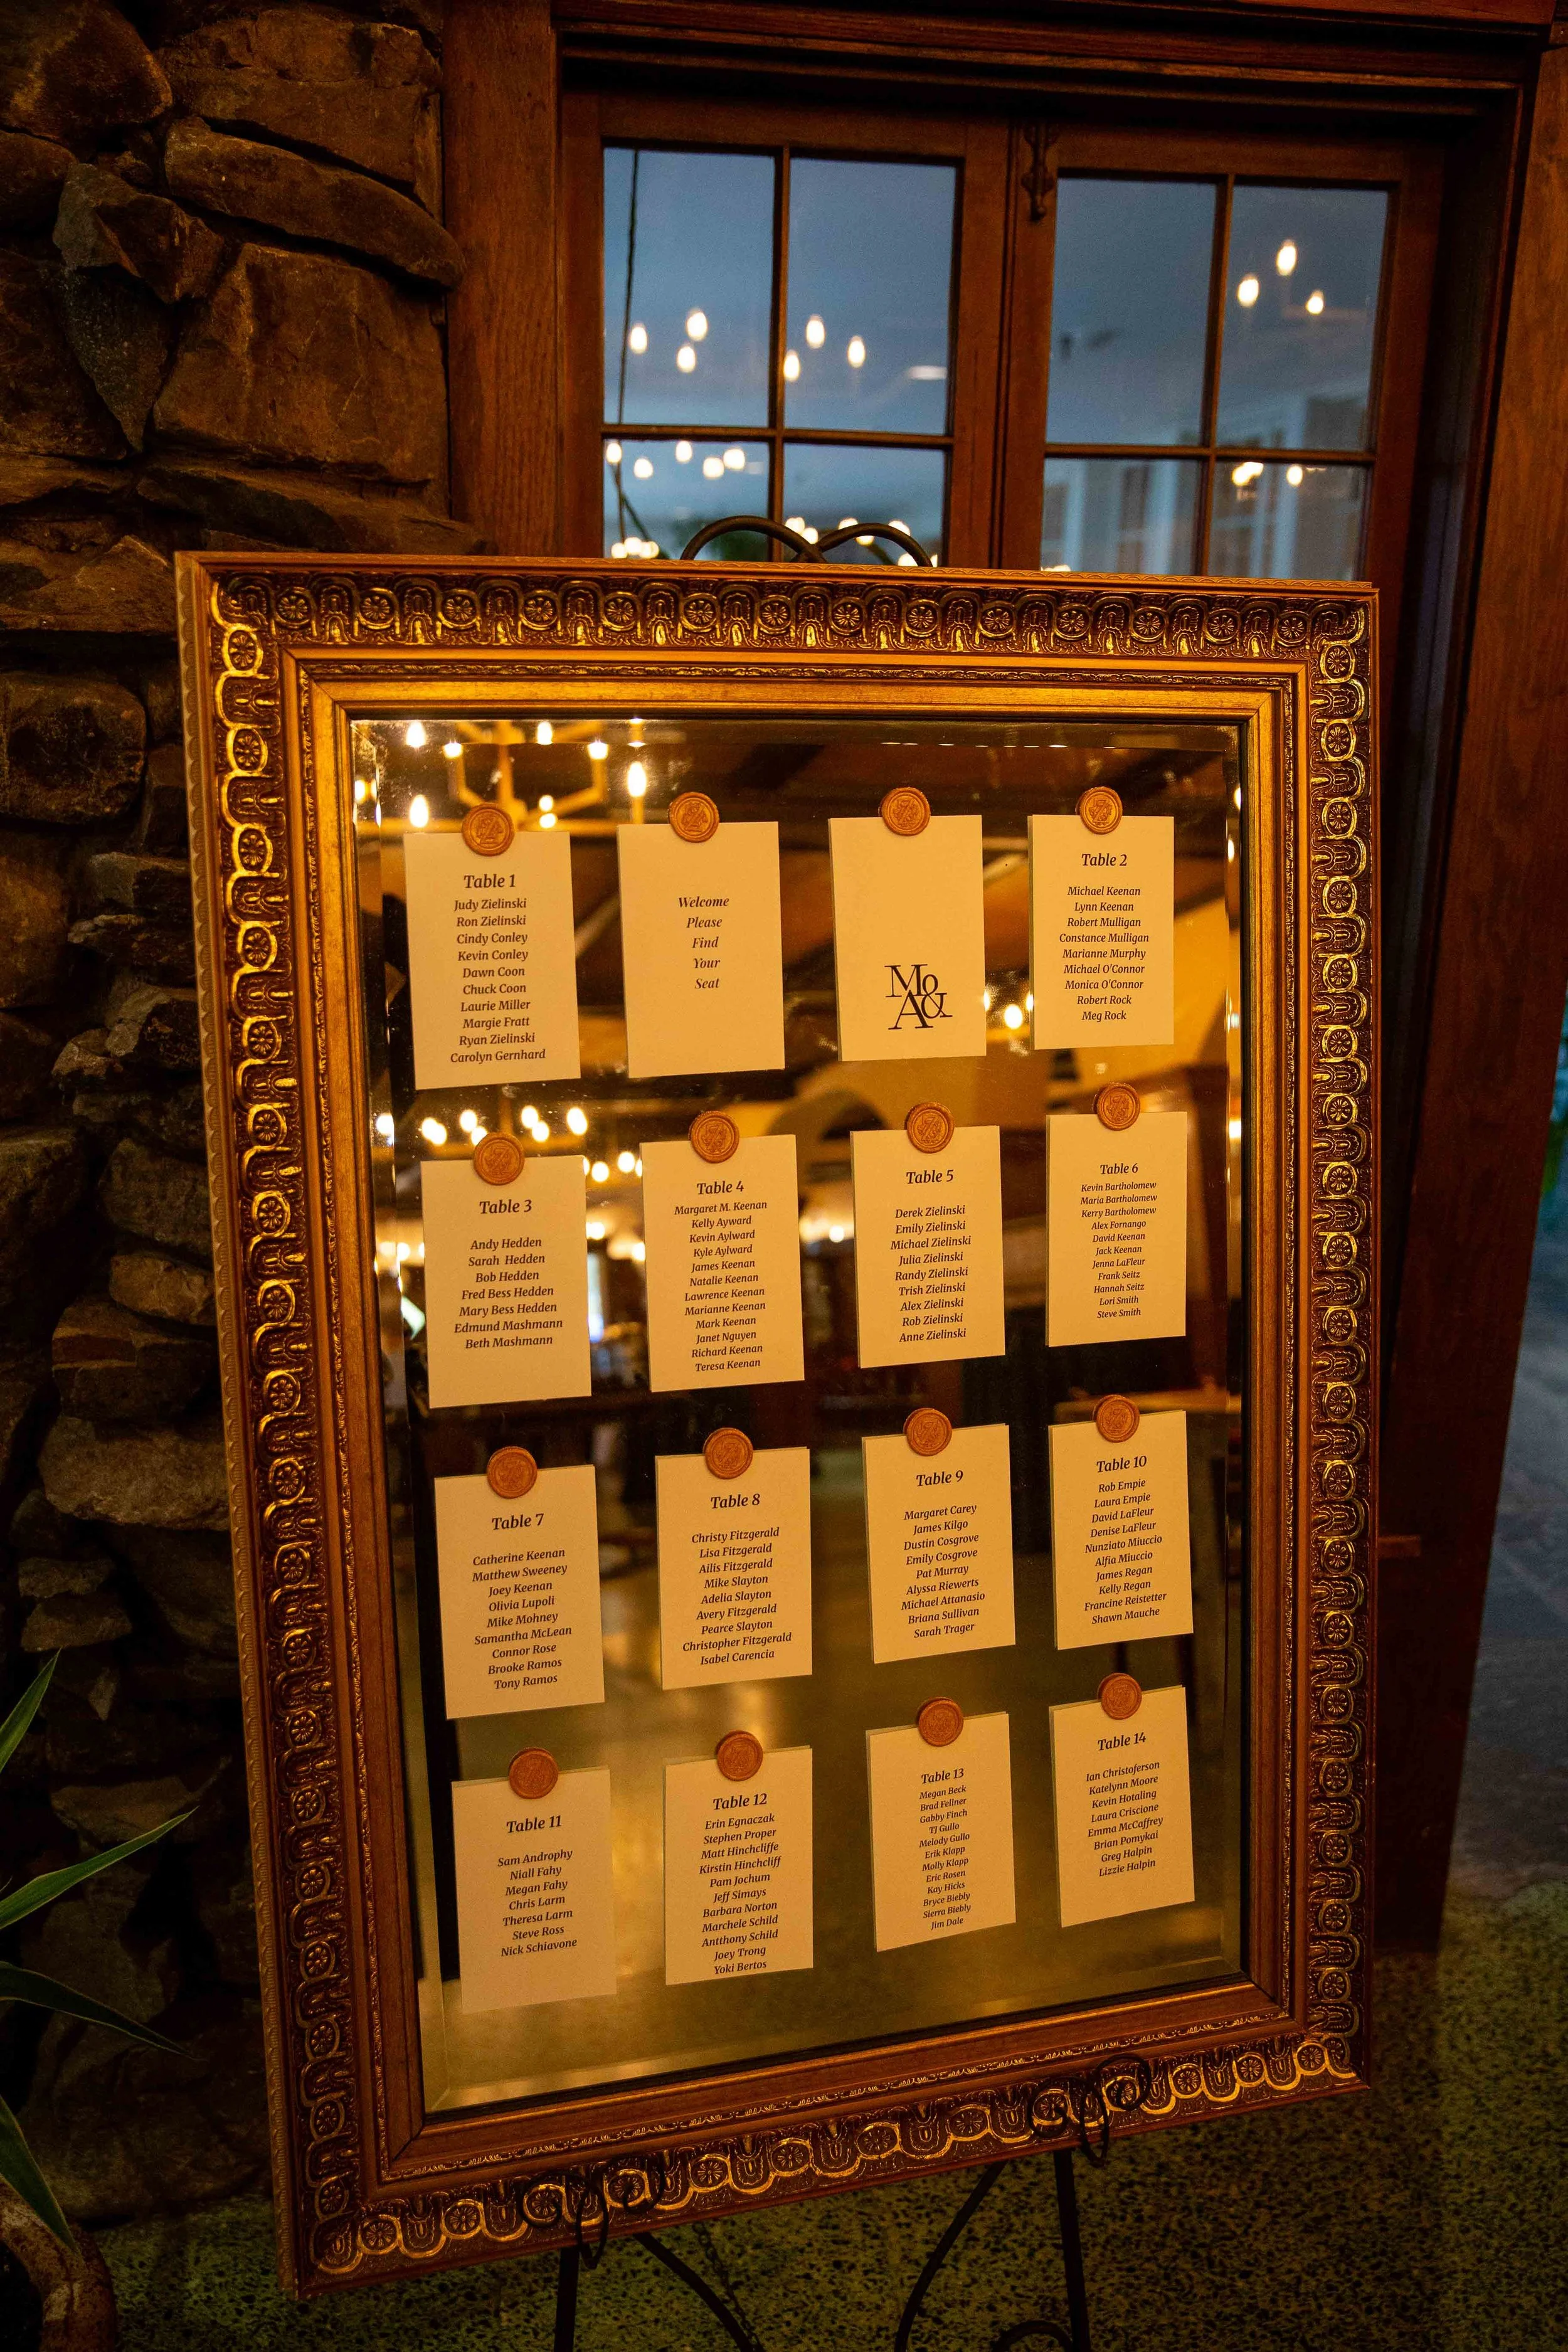 Table 1
Judy Zielinski
Ron Zielinski
Cindy Conley
Kevin Conley
Dawn Coon
Chuck Coon
Laurie Miller
Margie Fratt
Ryan Zielinski
Carolyn Gernhard
Welcome
Please
Find
Your
Seat
Mo
A&
Table 2
Michael Keenan
Lynn Keenan
Robert Mulligan
Constance Mulligan
Marianne Murphy
Michael O'Connor
Monica O'Connor
Robert Rock
Meg Rock
Table 3
Andy Hedden
Sarah Hedden
Bob Hedden
Fred Bess Hedden
Mary Bess Hedden
Edmund Mashmann
Beth Mashmann
Table 4
Margaret M. Keenan
Kelly Ayward
Kevin Aylward
Kyle Aylward
James Keenan
Natalie Keenan
Lawrence Keenan
Marianne Keenan
Mark Keenan
Janet Nguyen
Richard Keenan
Teresa Keenan
Table 5
Derek Zielinski
Emily Zielinski
Michael Zielinski
Julia Zielinski
Randy Zielinski
Trish Zielinski
Alex Zielinski
Rob Zielinski
Anne Zielinski
Table 6
Kevin Bartholomew
Maria Bartholomew
Kerry Bartholomew
Alex Fornango
David Keenan
Jack Keenan
Jenna LaFleur
Frank Seitz
Hannah Seitz
Lori Smith
Steve Smith
Table 7
Catherine Keenan
Matthew Sweeney
Joey Keenan
Olivia Lupoli
Mike Mohney
Samantha McLean
Connor Rose
Brooke Ramos
Tony Ramos
Table 8
Christy Fitzgerald
Lisa Fitzgerald
Ailis Fitzgerald
Mike Slayton
Adelia Slayton
Avery Fitzgerald
Pearce Slayton
Christopher Fitzgerald
Isabel Carencia
Table 9
Margaret Carey
James Kilgo
Dustin Cosgrove
Emily Cosgrove
Pat Murray
Alyssa Riewerts
Michael Attanasio
Briana Sullivan
Sarah Trager
Table 10
Rob Empie
Laura Empie
David LaFleur
Denise LaFleur
Nunziato Miuccio
Alfia Miuccio
James Regan
Kelly Regan
Francine Reistetter
Shawn Mauche
Table 11
Sam Androphy
Niall Fahy
Megan Fahy
Chris Larm
Theresa Larm
Steve Ross
Nick Schiavone
Table 12
Erin Egnaczak
Stephen Proper
Matt Hinchcliffe
Kirstin Hinchcliff
Pam Jochum
Jeff Simays
Barbara Norton
Marchele Schild
Antthony Schild
Joey Trong
Yoki Bertos
Table 13
Megan Beck
Brad Fellner
Gabby Finch
TJ Gullo
Melody Gullo
Erik Klapp
Molly Klapp
Eric Rosen
Kay Hicks
Bryce Biebly
Sierra Biebly
Jim Dale
Table 14
Ian Christoferson
Katelynn Moore
Kevin Hotaling
Laura Criscione
Emma McCaffrey
Brian Pomykai
Greg Halpin
Lizzie Halpin